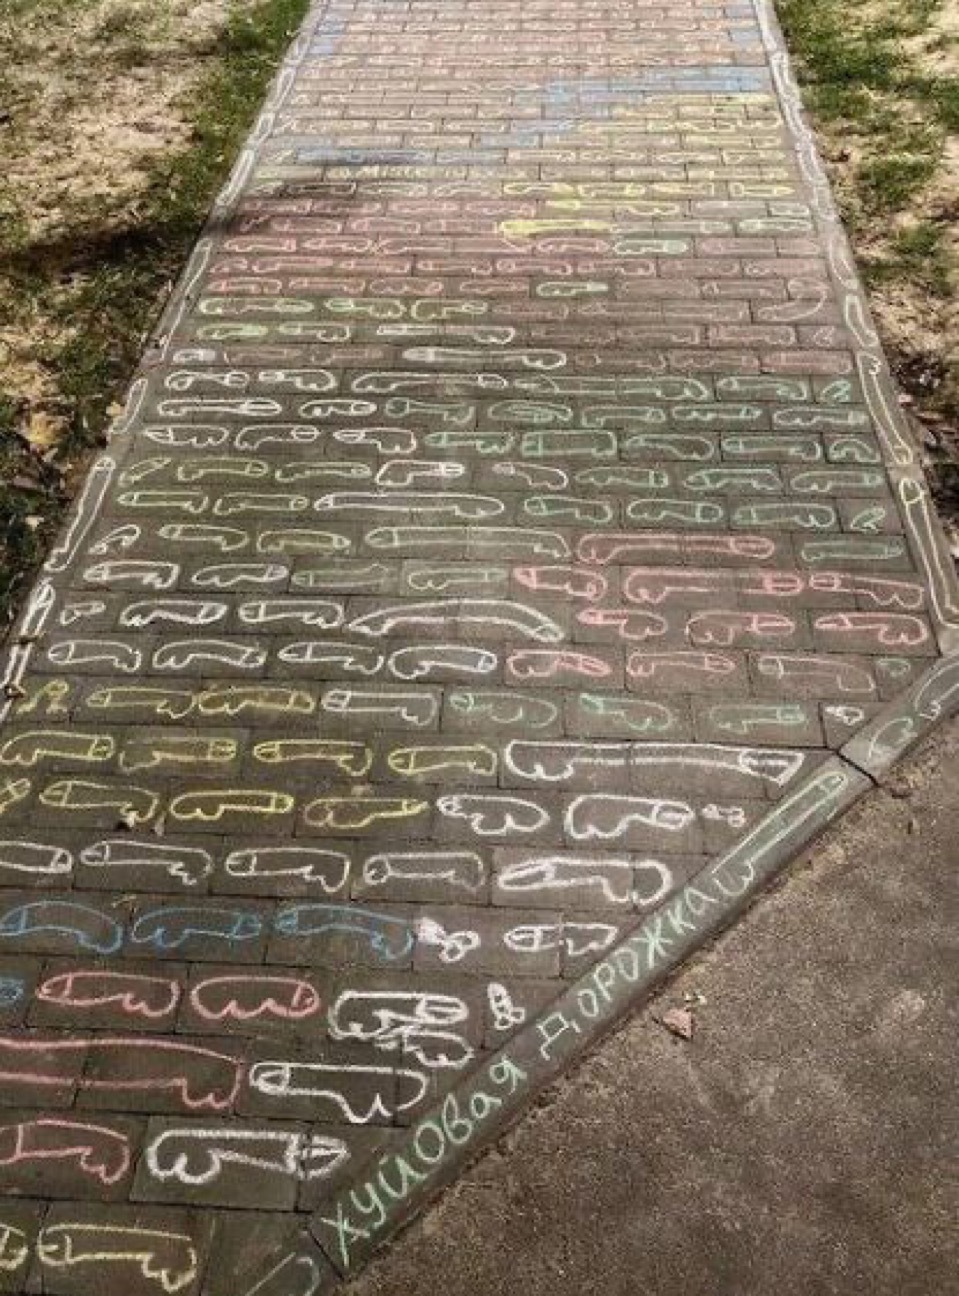 хуйОвая дорожка